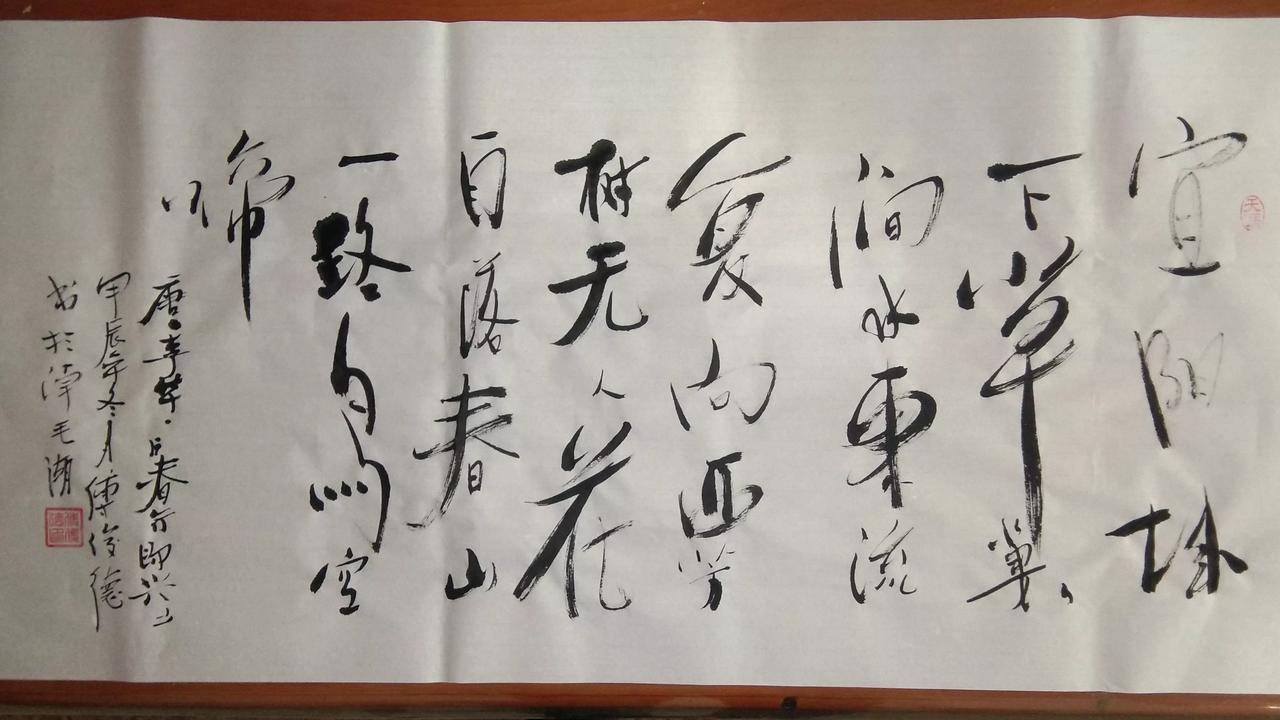 宜阳城
下草萋々
涧水東流
复向西芳
树无人花
自落春山
一路鸟空
啼
唐·李华·春行即兴
甲辰年冬月傅俊德
书於